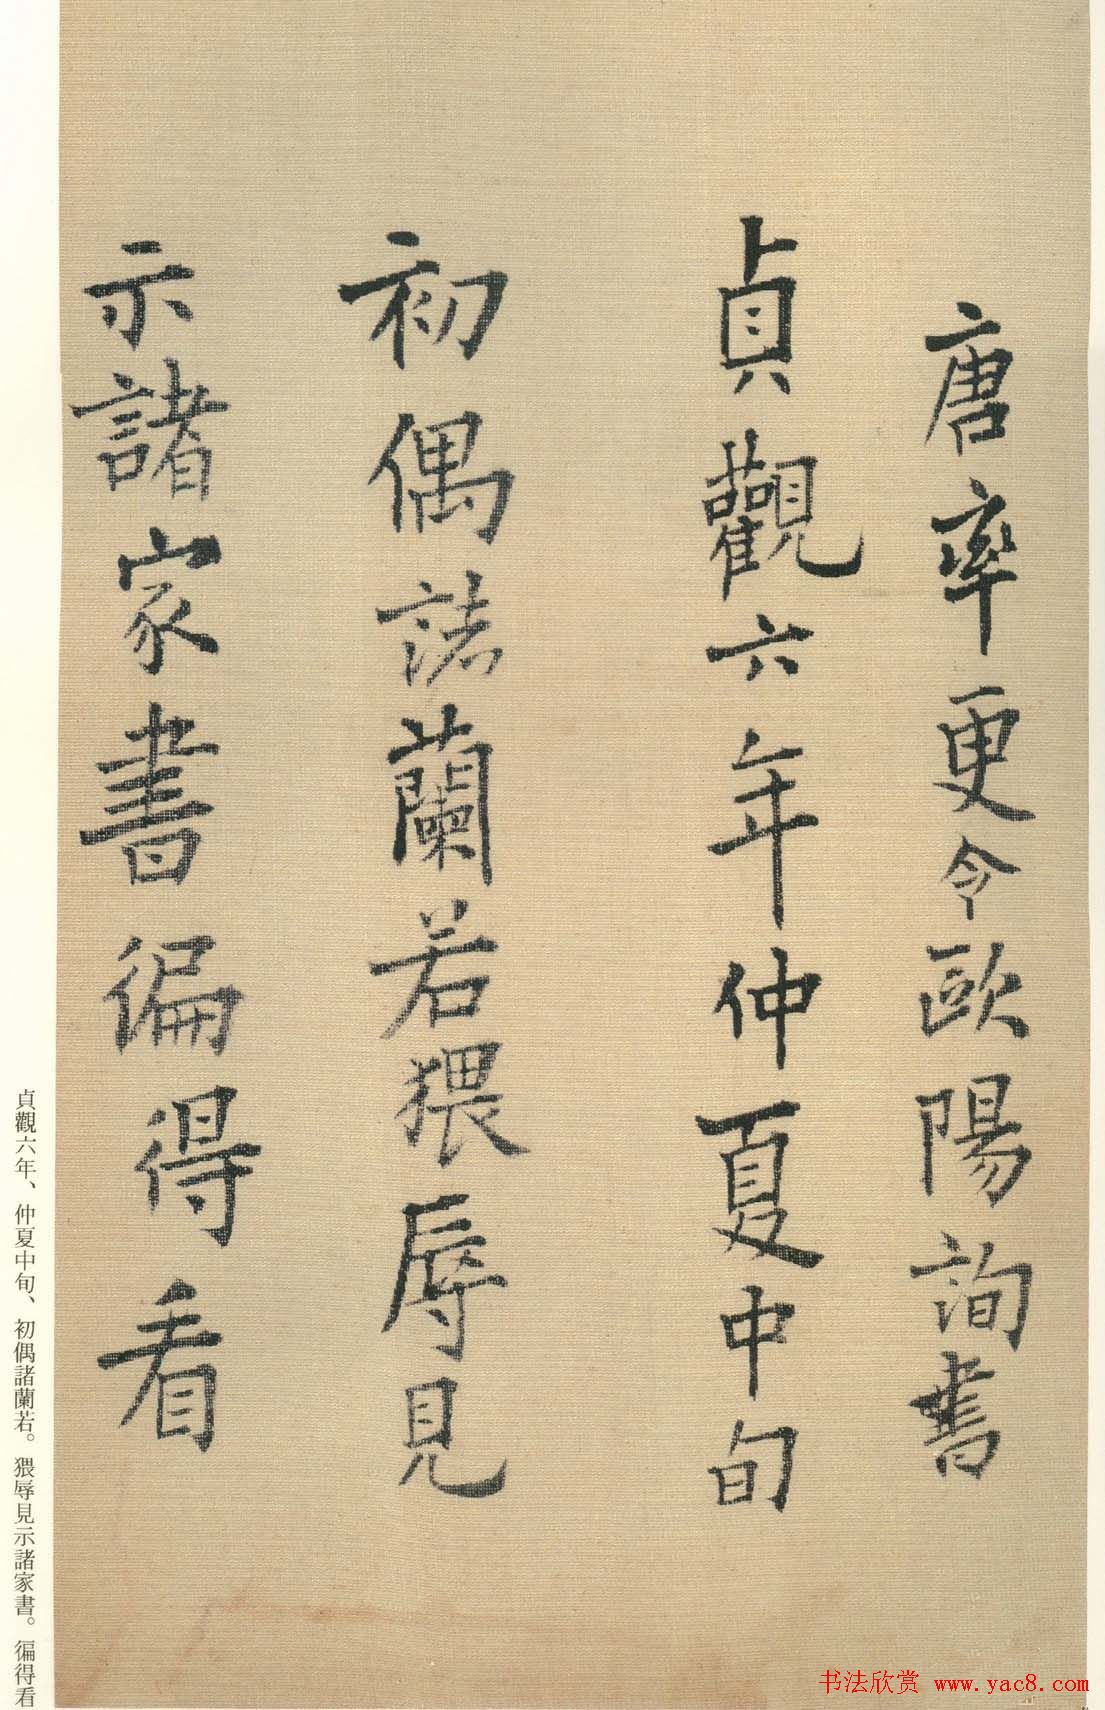 唐率更令歐陽詢書
貞觀六年仲夏中旬
初偶誌蘭若猥辱見
示諸家書徧得看
貞觀六年、仲夏中旬、初偶諸蘭若。猥辱見示諸家書。徧得看
书法欣赏 www.yac8.com